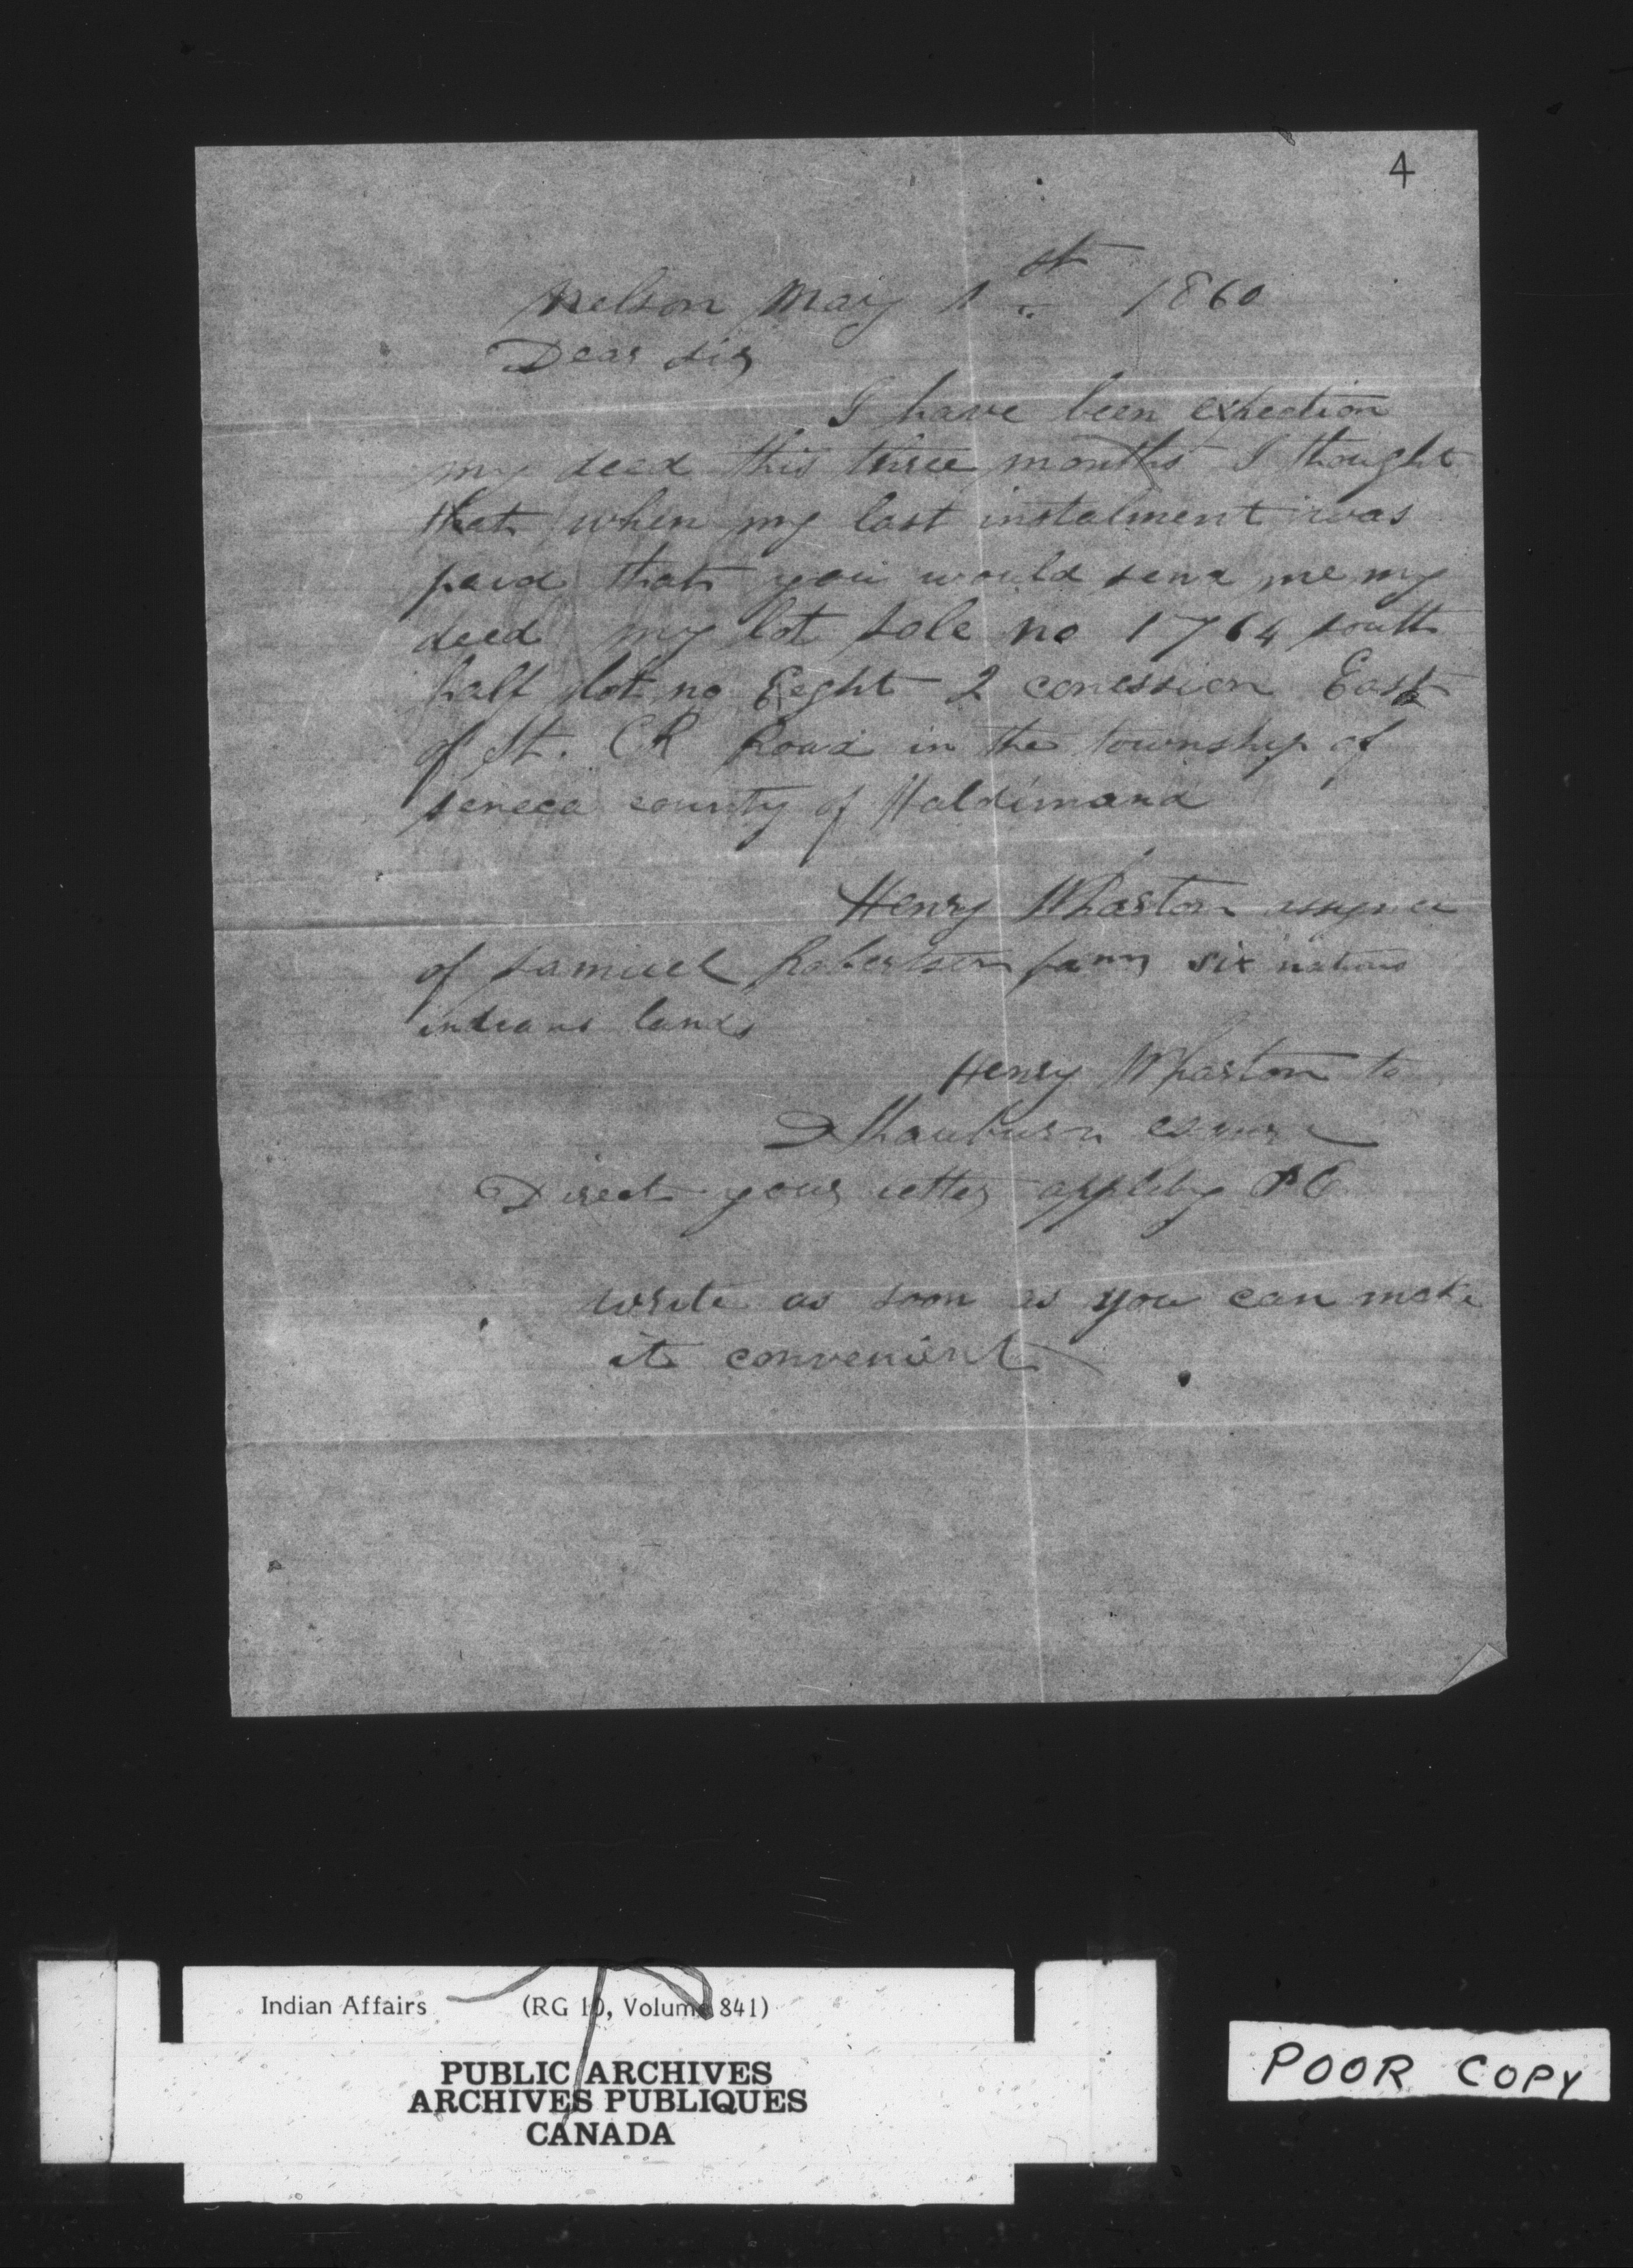 4
Nelson May 1st 1860
Dear Sir
I have been expection
my deed this three months I thought
that when my last instalment was
paid that you would send me my
deed my lot sale no 1764 south
half lot no Eeght 2 conession East
of St. CR Road in the township of
seneca county of Haldimand
Henry Wharton assignee
of Samuel Robertson six nations
indians lands
Henry Wharton to
Thauburn esquire
Direct your letter appleby PO
write as soon as you can make
it convenient
Indian Affairs (RG 10, Volume 841)
PUBLIC ARCHIVES
ARCHIVES PUBLIQUES
CANADA
POOR COPY